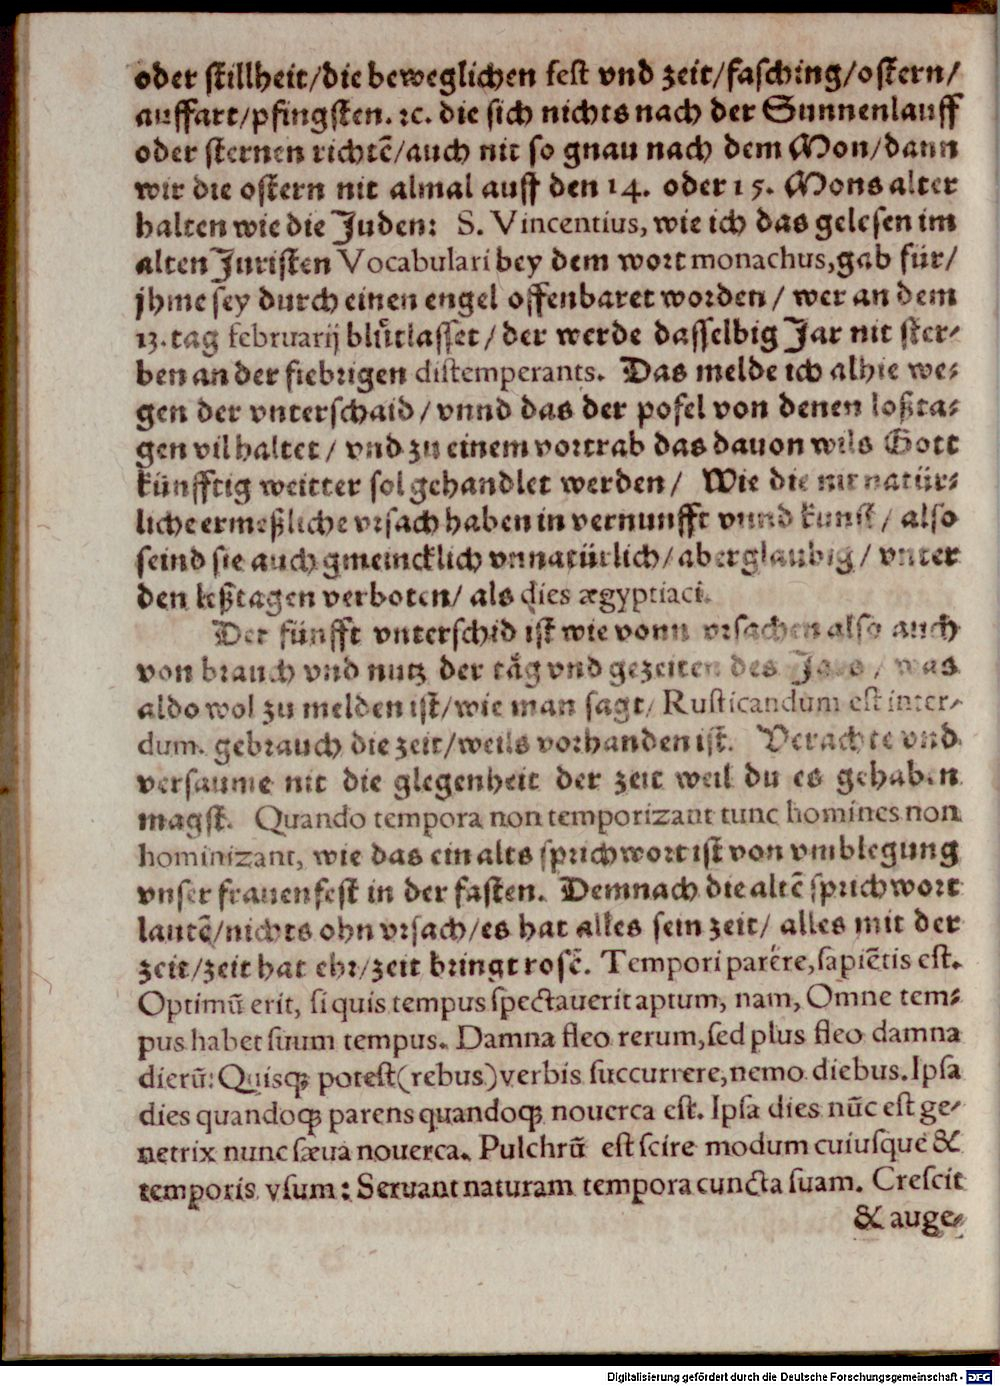 oder stillheit/die beweglichen fest vnd zeit/fasching/ostern/
auffart/pfingsten. ꝛc. die sich nichts nach der Sunnenlauff
oder sternen richtē/auch nit so gnau nach dem Mon/dann
wir die ostern nit almal auff den 14. oder 15. Mons alter
halten wie die Juden: S. Vincentius, wie ich das gelesen im
alten Juristen Vocabulari bey dem wort monachus, gab für/
jhme sey durch einen engel offenbaret worden / wer an dem
13. tag februarij blůtlasset / der werde dasselbig Jar nit ster-
ben an der fiebrigen distemperants. Das melde ich alhie we-
gen der vnterschaid / vnnd das der pofel von denen loßta-
gen vil haltet / vnd zu einem vortrab das dauon wils Gott
künfftig weitter sol gehandlet werden / Wie die nit natür-
liche ermeßliche vrsach haben in vernunfft vnnd kunst / also
seind sie auch gmeincklich vnnatürlich/aberglaubig / vnter
den leßtagen verboten/ als dies ægyptiaci.
Der fünfft vnterschid ist wie vonn vrsachen also auch
von brauch vnd nutz der tåg vnd gezeiten des Jars / was
aldo wol zu melden ist/wie man sagt, Rusticandum est inter-
dum. gebrauch die zeit/weils vorhanden ist. Verachte vnd
versaume nit die glegenheit der zeit weil du es gehaben
magst. Quando tempora non temporizant tunc homines non
hominizant, wie das ein alts sprichwort ist von vmblegung
vnser frauenfest in der fasten. Demnach die altē sprichwort
lautē/nichts ohn vrsach/es hat alles sein zeit/ alles mit der
zeit/zeit hat ehr/zeit bringt rosē. Tempori parére, sapiētis est.
Optimū erit, si quis tempus spectauerit aptum, nam, Omne tem-
pus habet suum tempus. Damna fleo rerum, sed plus fleo damna
dierū: Quisqꝫ potest (rebus) verbis succurrere, nemo diebus. Ipsa
dies quandoqꝫ parens quandoqꝫ nouerca est. Ipsa dies nūc est ge-
netrix nunc sæua nouerca. Pulchrū est scire modum cuiusque &
temporis vsum: Seruant naturam tempora cuncta suam. Crescit
& auge-
Digitalisierung gefördert durch die Deutsche Forschungsgemeinschaft - DFG